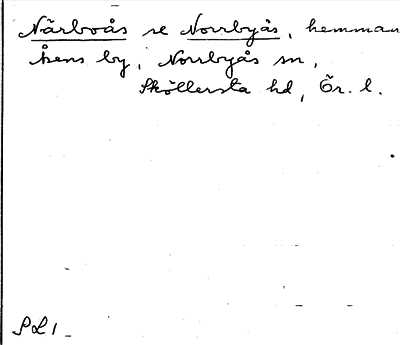 Närboås se Norrbyås, hemman
Åsens by, Norrbyås sn,
Sköllersta hd, Ör. l.
PL1